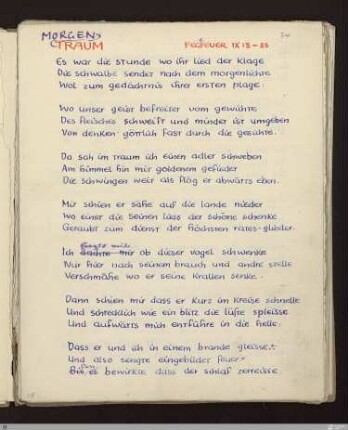 MORGENS
TRAUM
FEGFEUER IX 13-33
Es war die stunde wo ihr lied der klage
Die schwalbe sendet nach dem morgenlichte
Wol zum gedächtnis ihrer ersten plage:
Wo unser geist befreiter vom gewichte
Des fleisches schweift und minder ist umgeben
Von denken · göttlich fast durch die gesichte.
Da sah im traum ich einen adler schweben
Am himmel hin mit goldenem gefieder
Die schwingen weit als flög er abwärts eben.
Mir schien er saſse auf die lande nieder
Wo einst die Seinen liess der schöne schenke
Geraubt zum dienst der höchsten rates-glieder.
fragte mich
Ich dachte mir ob dieser vogel schwenke
Nur hier nach seinem brauch und andre stelle
Verschmähe wo er seine krallen senke.
Dann schien mir dass er kurz im kreise schnelle
Und schrecklich wie ein blitz die lüfte spleisse
Und aufwärts mich entführe in die helle.
Dass er und ich in einem brande gleisse
Und also sengte eingebildet feuer
Bis es bewirkte dass der schlaf zerreisse.